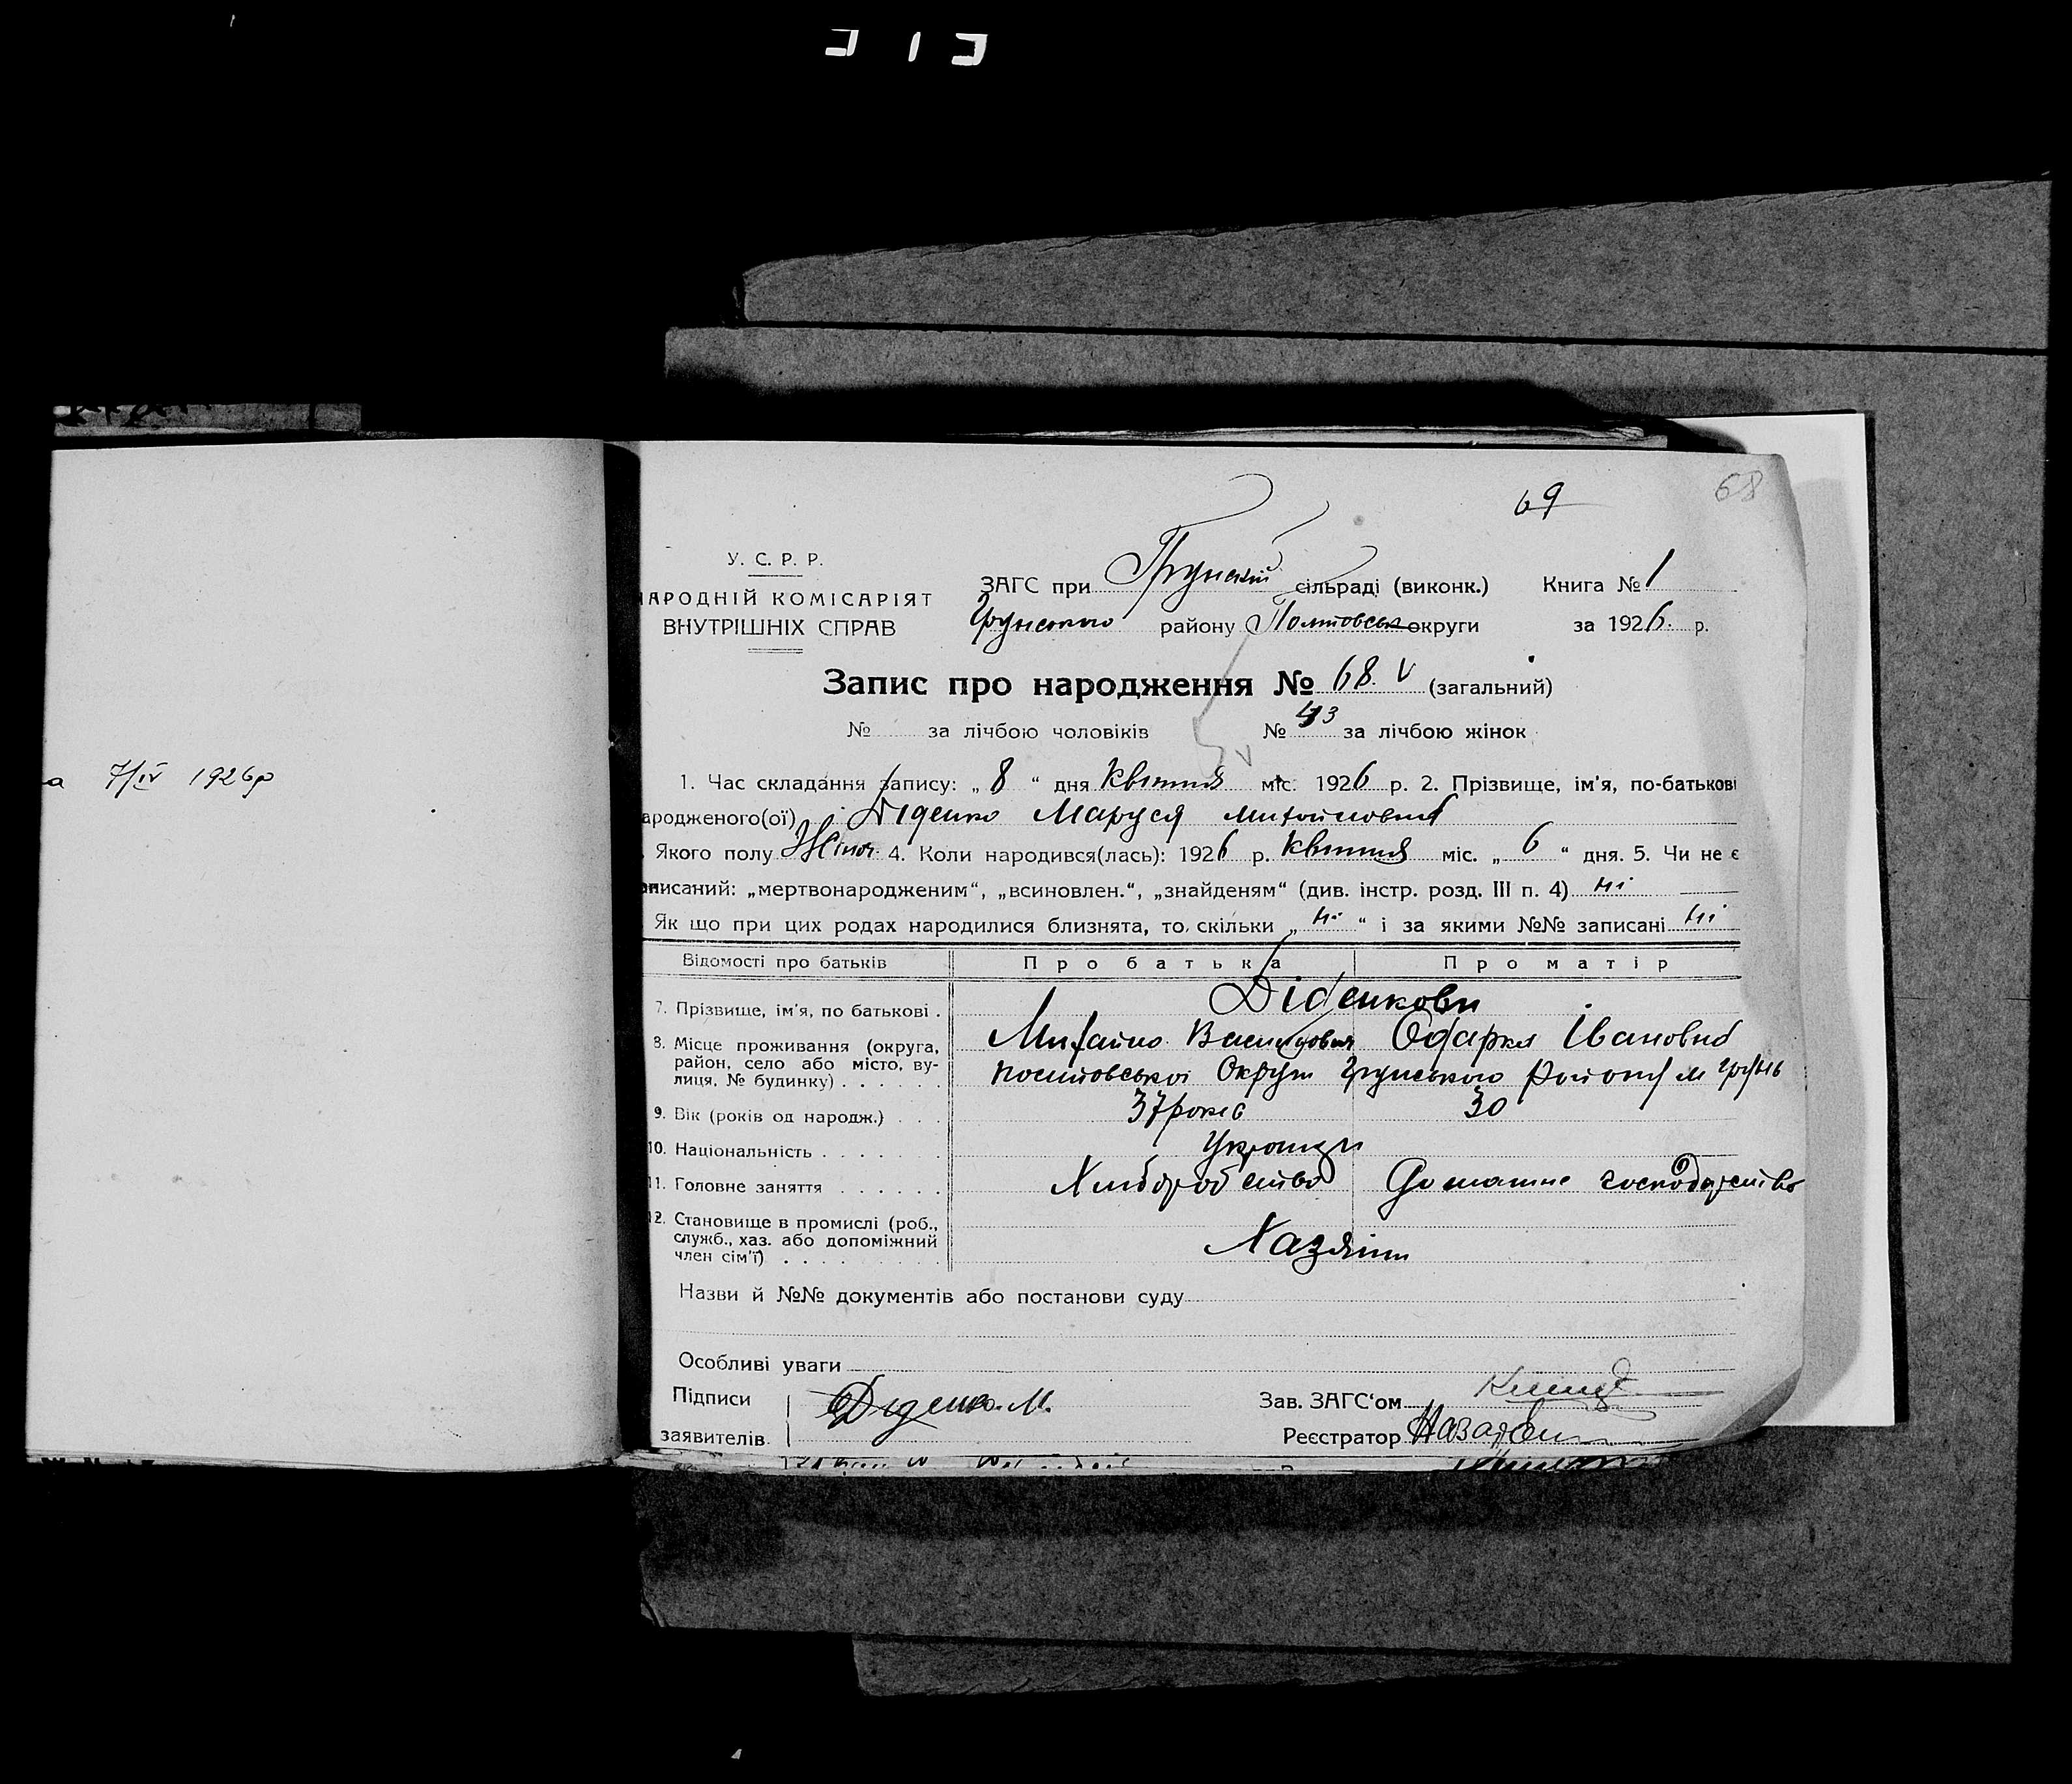 а 7/IV 1926р
69
68
У. С. Р. Р.
АРОДНІЙ КОМІСАРІЯТ
ВНУТРІШНІХ СПРАВ
ЗАГС при Грунській сільраді (виконк.) Книга № 1
Грунського району Полтовськ округи за 1926. р.
Запис про народження № 68. V (загальний)
№ за лічбою чоловіків № 43 за лічбою жінок
1. Час складання запису: „ 8 “ дня Квітня міс. 1926 р. 2. Прізвище, ім'я, по-батькові
ародженого(ої) Діденко Маруся Михайловна
Якого полу Жіноч. 4. Коли народився(лась): 1926 р. Квітня міс. „ 6 “ дня. 5. Чи не є
писаний: „мертвонародженим“, „всиновлен.“, „знайденям“ (див. інстр. розд. III п. 4) ні
Як що при цих родах народилися близнята, то скільки „ ні “ і за якими №№ записані ні
Відомості про батьків Про батька Про матір
7. Прізвище, ім'я, по батькові . Діденкови
Михайло Васильович Одарка Івановна
8. Місце проживання (округа, район, село або місто, ву-
лиця, № будинку) . . . . . . Полтовської Округи Грунського Району м Грунь
9. Вік (років од народж.) . . . 37 років 30
10. Національність . . . . . . . Українци
11. Головне заняття . . . . . . Хліборобство Домашне господарство
12. Становище в промислі (роб.,
служб., хаз. або допоміжний
член сім'ї) . . . . . . . . . Хазяіни
Назви й №№ документів або постанови суду
Особливі уваги
Підписи Діденко. М. Зав. ЗАГС'ом
заявителів Реєстратор